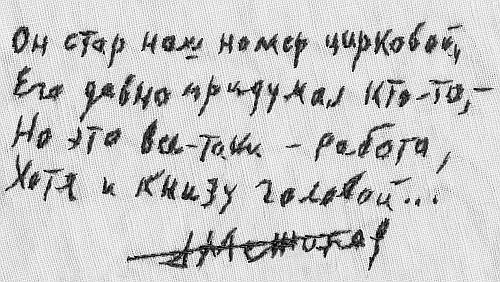 Он стар наш номер цирковой,
Его давно придумал кто-то,–
Но это всё-таки – работа,
Хотя и книзу головой...